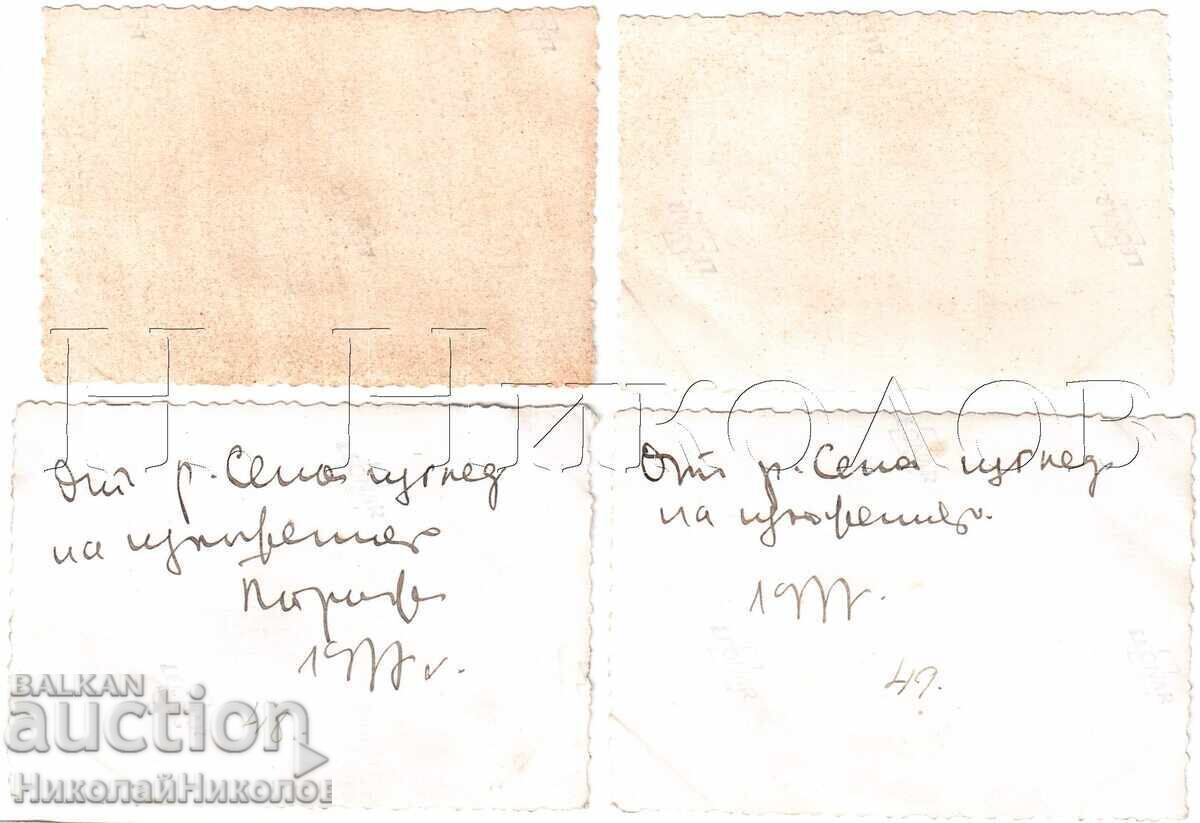 Н Николов
От р. Сена изглед
на изложението
Париж
1937 г.
48.
От р. Сена изглед
на изложението.
1937 г.
49.
BALKAN
auction
НиколайНиколов